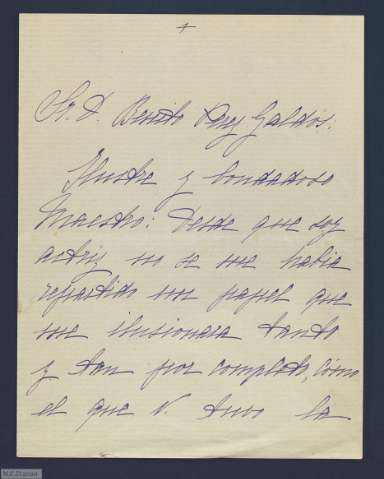 +
Sr. D. Benito Perez Galdós.
Ilustre y bondadoso
Maestro: Desde que soy
actriz no se me habia
repartido un papel que
me ilusionara tanto
y tan por completo, como
el que V. tuvo la